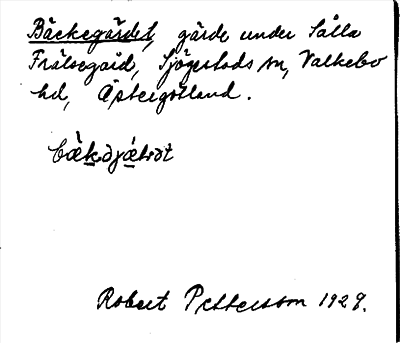 Bäckegärdet, gärde under Sålla
Frälsegård, Sjögestads sn, Valkebo
hd, Östergötland.
Robert Pettersson 1929.